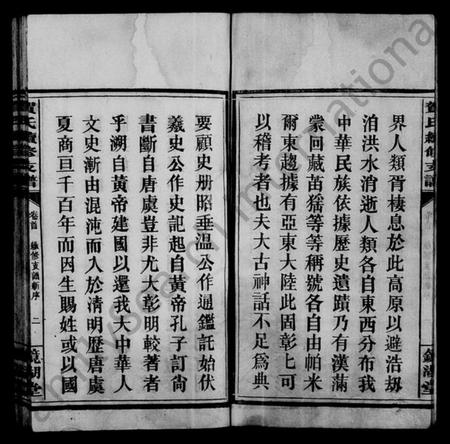 界人類胥棲息於此高原以避浩劫
洎洪水消逝人類各自東西分布我
中華民族依據歷史遺蹟乃有漢滿
蒙回藏苗猺等等稱號各自由帕米
爾東趨據有亞東大陸此固彰彰可
以稽考者也夫大古神話不足爲典
要顧史册昭垂温公作通鑑託始伏
羲史公作史記起自黄帝孔子訂尚
書斷自唐虞豈非尤大彰明較著者
乎溯自黄帝建國以還我大中華人
文史漸由混沌而入於清明歷唐虞
夏商亘千百年而因生賜姓或以國
賀氏續修支譜
卷首
續修支譜新序
二
鏡湖堂